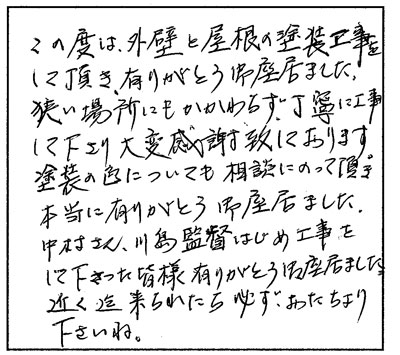 この度は、外壁と屋根の塗装工事を
して頂き、有りがとう御座居ました。
狭い場所にもかかわらず、丁寧に工事
して下さり大変感謝致しております。
塗装の色についても相談にのって頂き
本当に有りがとう御座居ました。
中村さん、川島監督はじめ工事を
して下さった皆様有りがとう御座居ました。
近く迄来られたら必ず、おたちより
下さいね。